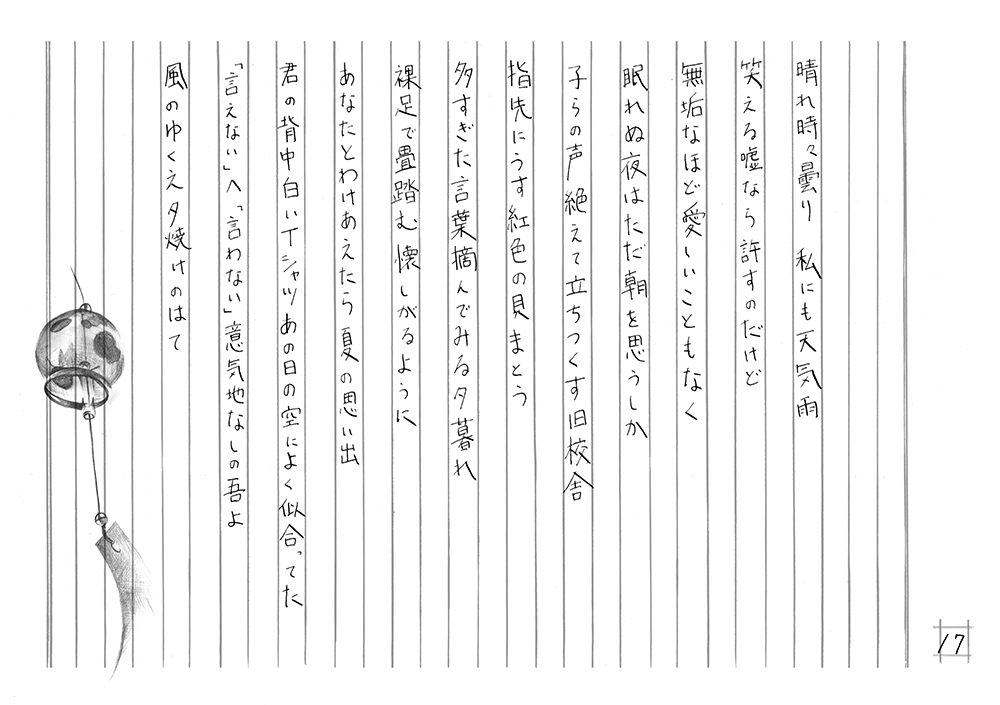 晴れ時々曇り　私にも天気雨
笑える嘘なら許すのだけど
無垢なほど愛しいこともなく
眠れぬ夜はただ朝を思うしか
子らの声絶えて立ちつくす旧校舎
指先にうす紅色の貝まとう
多すぎた言葉摘んでみる夕暮れ
裸足で畳踏む懐しがるように
あなたとわけあえたら夏の思い出
君の背中白いTシャツあの日の空によく似合ってた
「言えない」へ「言わない」意気地なしの吾よ
風のゆくえ夕焼けのはて
17